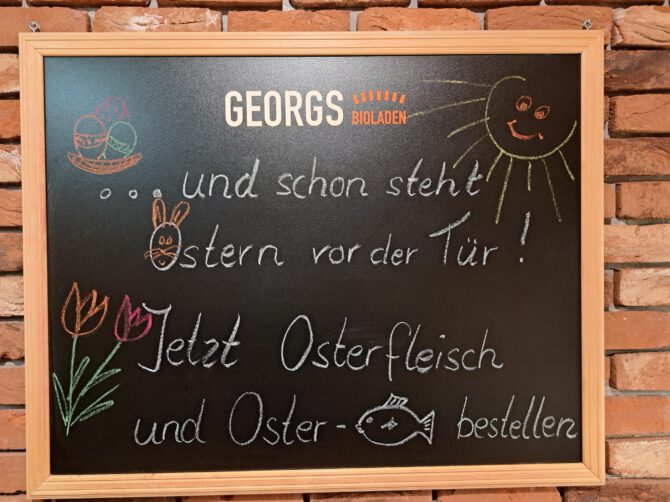 GEORGS BIOLADEN
...und schon steht
Ostern vor der Tür!
Jetzt Osterfleisch
und Oster- bestellen